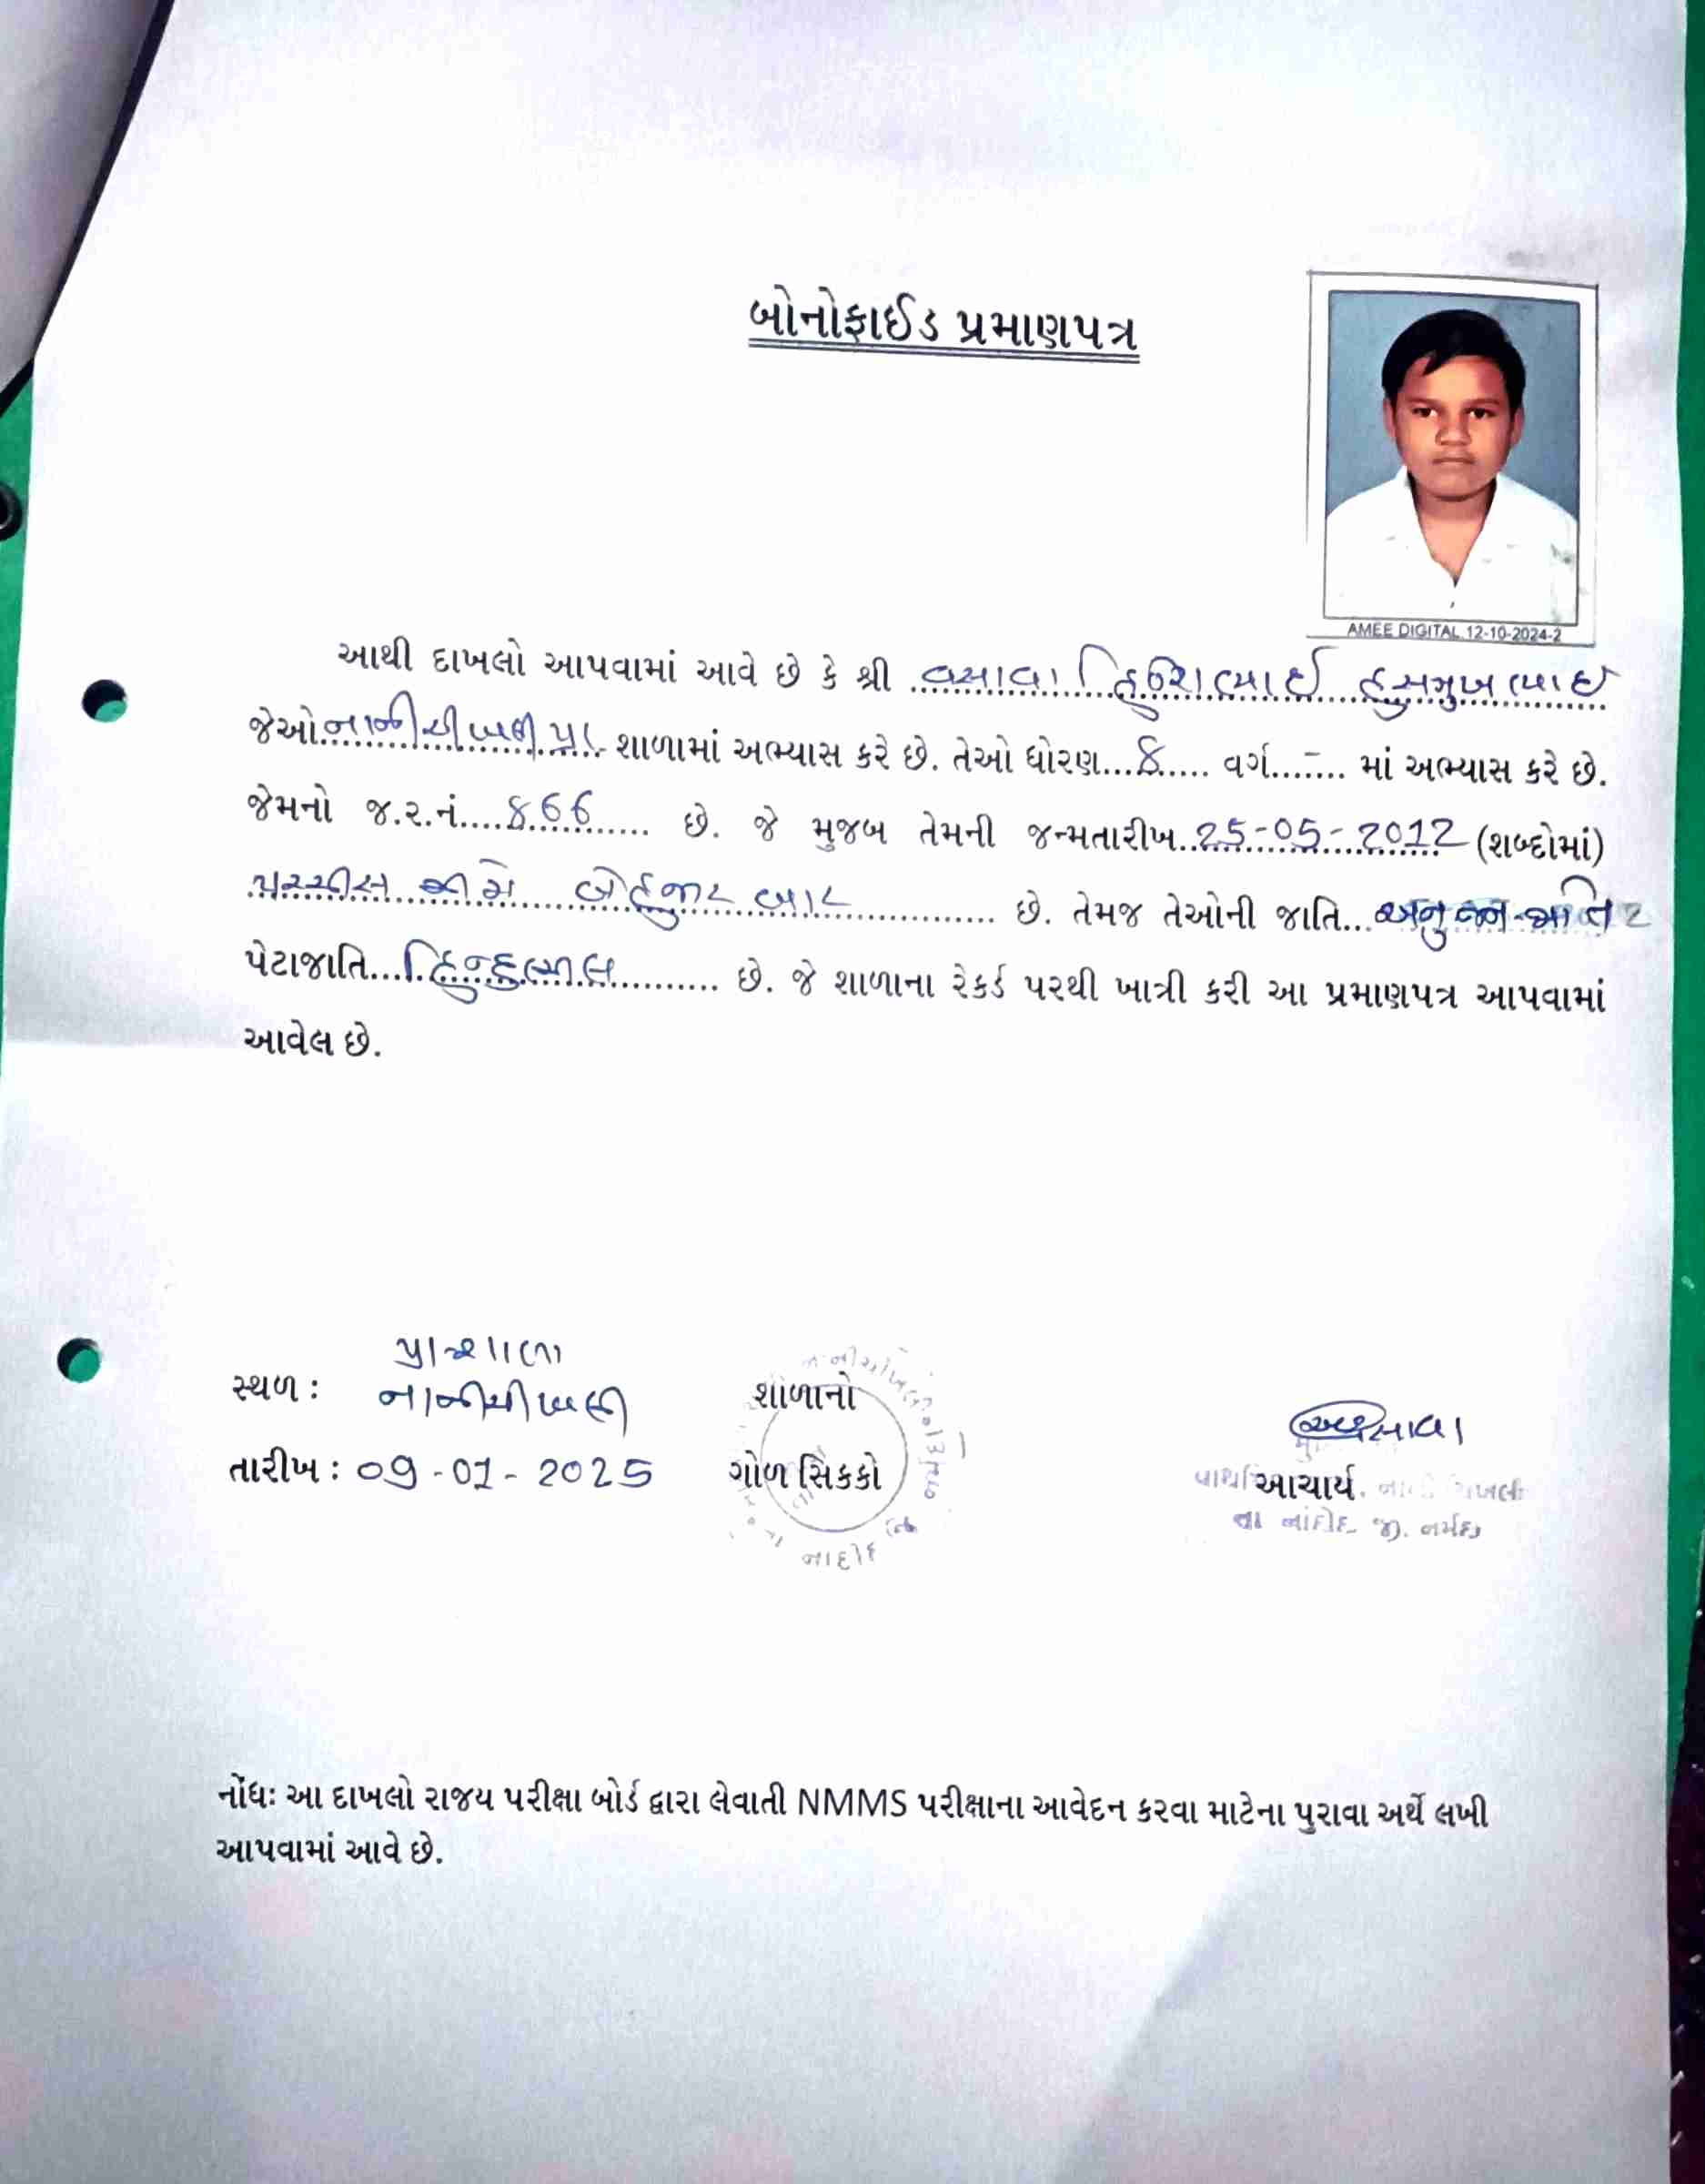 બોનોફાઈડ પ્રમાણપત્ર
AMEE DIGITAL 12-10-2024-2
આથી દાખલો આપવામાં આવે છે કે શ્રી વસાવા હસમુખભાઈ
જેઓ નાનીચીખલી પ્રા. શાળામાં અભ્યાસ કરે છે. તેઓ ધોરણ...8..... વર્ગ...-.... માં અભ્યાસ કરે છે.
જેમનો જ.ર.નં....866...... છે. જે મુજબ તેમની જન્મતારીખ..25-05-2012 (શબ્દોમાં)
પચ્ચીસ મે બેહજાર બાર ............... છે. તેમજ તેઓની જાતિ...
પેટાજાતિ...હિન્દુભીલ........... છે. જે શાળાના રેકર્ડ પરથી ખાત્રી કરી આ પ્રમાણપત્ર આપવામાં
આવેલ છે.
પ્રા શાળા
સ્થળ : નાનીચીખલી
તારીખ : 09-01-2025
શાળાનો
ગોળ સિકકો
નાંદોદ
આચાર્ય
તા નાંદોદ જી. નર્મદા
નોંધઃ આ દાખલો રાજય પરીક્ષા બોર્ડ દ્વારા લેવાતી NMMS પરીક્ષાના આવેદન કરવા માટેના પુરાવા અર્થે લખી
આપવામાં આવે છે.